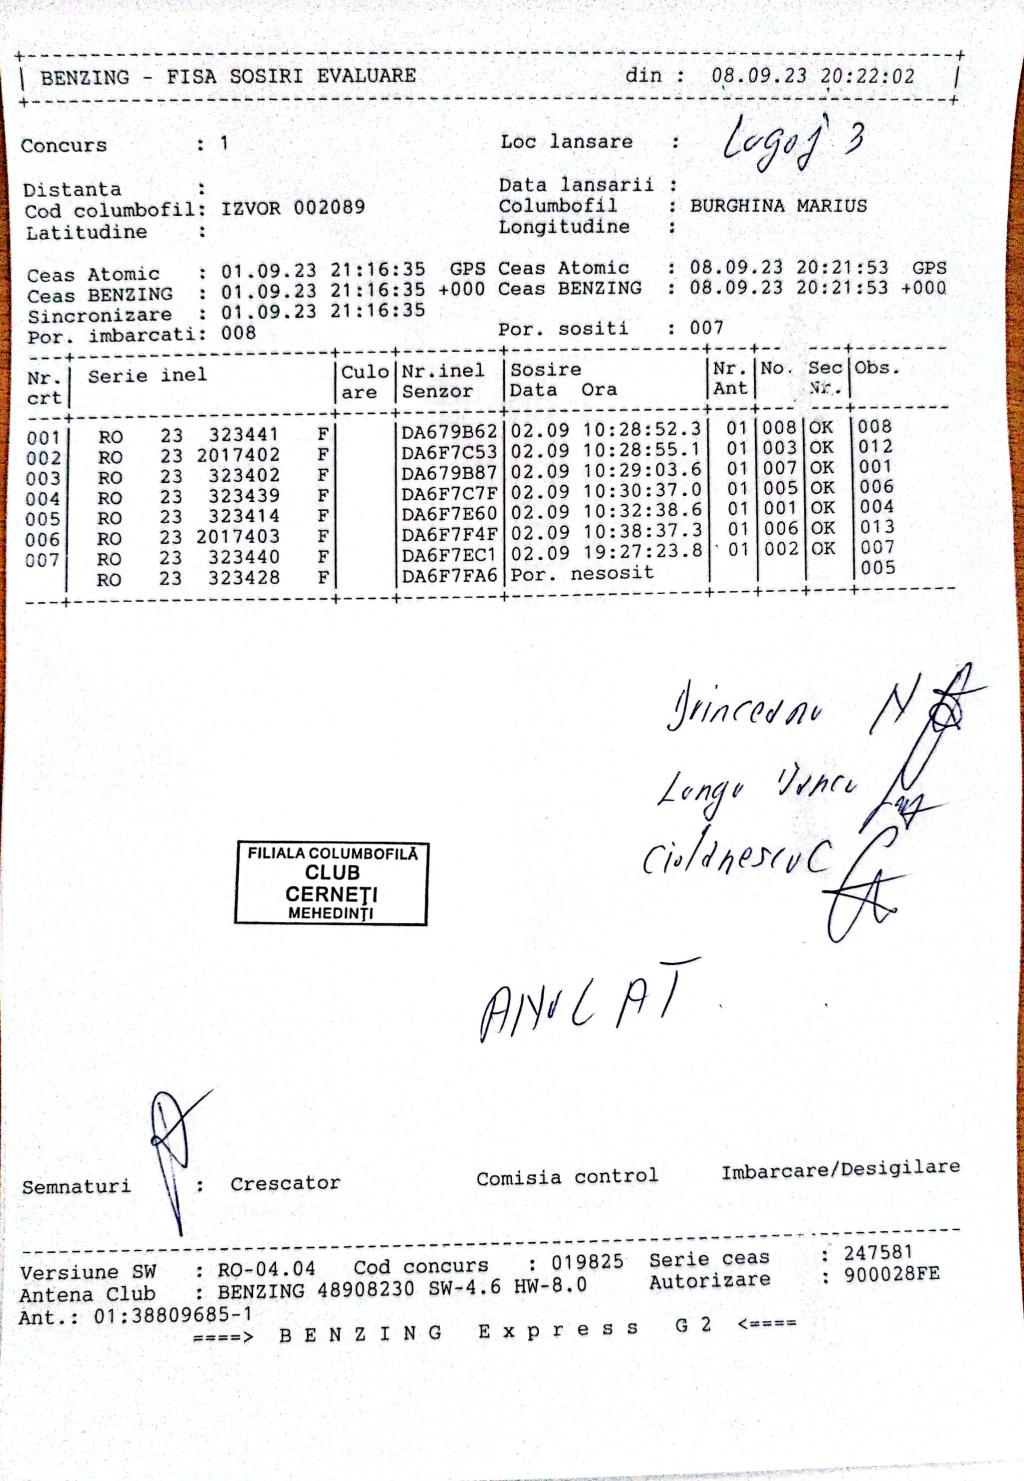 +--------------------------------------------------------------+
| BENZING - FISA SOSIRI EVALUARE din : 08.09.23 20:22:02 |
+--------------------------------------------------------------+
Concurs : 1 Loc lansare : Lugoj 3
Distanta : Data lansarii :
Cod columbofil: IZVOR 002089 Columbofil : BURGHINA MARIUS
Latitudine : Longitudine :
Ceas Atomic : 01.09.23 21:16:35 GPS Ceas Atomic : 08.09.23 20:21:53 GPS
Ceas BENZING : 01.09.23 21:16:35 +000 Ceas BENZING : 08.09.23 20:21:53 +000
Sincronizare : 01.09.23 21:16:35
Por. imbarcati: 008 Por. sositi : 007
Nr. | Serie inel |Culo|Nr.inel |Sosire |Nr.|No.|Sec|Obs.
crt| |are |Senzor |Data Ora |Ant| |Nr.|
001| RO 23 323441 F| |DA679B62|02.09 10:28:52.3| 01|008|OK |008
002| RO 23 2017402 F| |DA6F7C53|02.09 10:28:55.1| 01|003|OK |012
003| RO 23 323402 F| |DA679B87|02.09 10:29:03.6| 01|007|OK |001
004| RO 23 323439 F| |DA6F7C7F|02.09 10:30:37.0| 01|005|OK |006
005| RO 23 323414 F| |DA6F7E60|02.09 10:32:38.6| 01|001|OK |004
006| RO 23 2017403 F| |DA6F7F4F|02.09 10:38:37.3| 01|006|OK |013
007| RO 23 323440 F| |DA6F7EC1|02.09 19:27:23.8| 01|002|OK |007
RO 23 323428 F| |DA6F7FA6|Por. nesosit | | | |005
N
Lungu Iancu
FILIALA COLUMBOFILĂ
CLUB
CERNEȚI
MEHEDINȚI
ANULAT
Semnaturi : Crescator Comisia control Imbarcare/Desigilare
Versiune SW : RO-04.04 Cod concurs : 019825 Serie ceas : 247581
Antena Club : BENZING 48908230 SW-4.6 HW-8.0 Autorizare : 900028FE
Ant.: 01:38809685-1
====> B E N Z I N G E x p r e s s G 2 <====